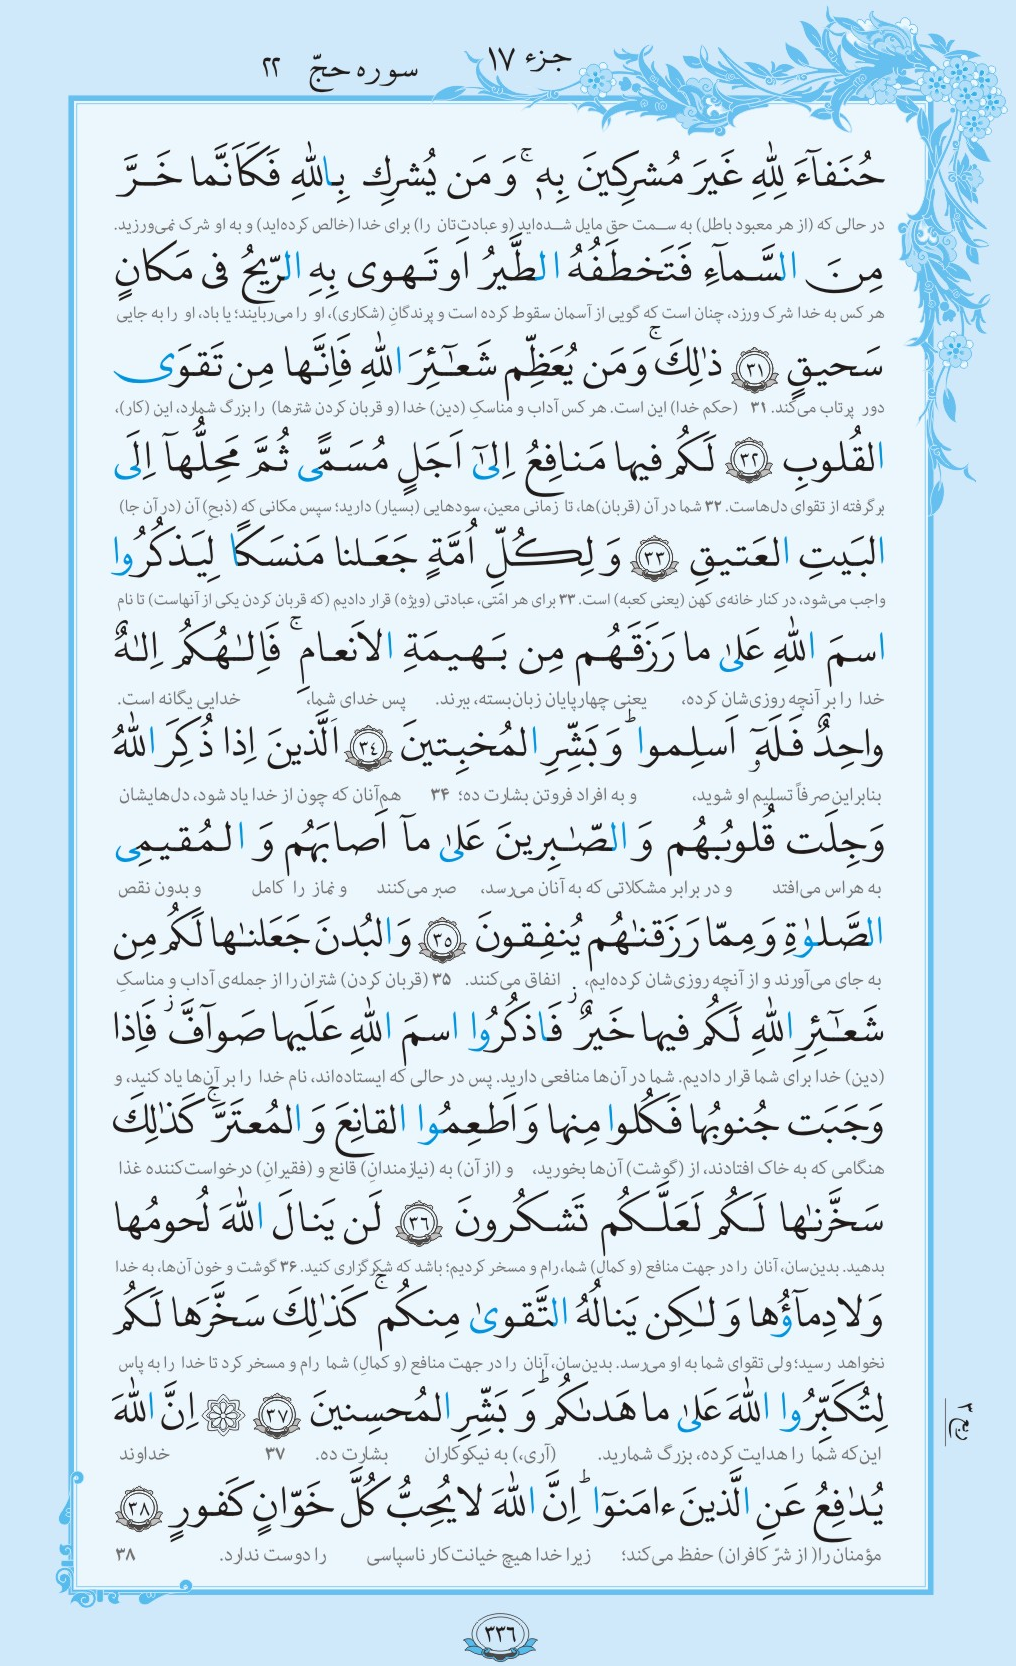 جزء ۱۷
سوره حجّ ۲۲
حُنَفآءَ لِلّٰهِ غَیرَ مُشرِکینَ بِهٖ ۚ وَ مَن یُشرِك بِاللّٰهِ فَکَاَنَّما خَـرَّ
در حالی که (از هر معبود باطل) به سمت حق مایل شده‌اید (و عبادت‌تان را) برای خدا (خالص کرده‌اید) و به او شرک نمی‌ورزید.
مِنَ السَّمآءِ فَتَخطَفُهُ الطَّیرُ اَو تَـهوی بِهِ الرّیحُ فی مَکانٍ
هر کس به خدا شرک ورزد، چنان است که گویی از آسمان سقوط کرده است و پرندگانِ (شکاری)، او را می‌ربایند؛ یا باد، او را به جایی
سَحیقٍ ﴿٣١﴾ ذٰلِكَ ۚ وَمَن یُعَظِّم شَعـٰٓئِرَ اللّٰهِ فَاِنَّها مِن تَقوَی
دور پرتاب می‌کند. ۳۱ (حکم خدا) این است. هر کس آداب و مناسکِ (دین) خدا (و قربان کردن شترها) را بزرگ شمارد، این (کار)،
القُلوبِ ﴿٣٢﴾ لَکُم فیها مَنافِعُ اِلیٰٓ اَجَلٍ مُسَمًّی ثُمَّ مَحِلُّهآ اِلَی
برگرفته از تقوای دل‌هاست. ۳۲ شما در آن (قربان)ها، تا زمانی معین، سودهایی (بسیار) دارید؛ سپس مکانی که (ذبحِ) آن (در آن جا)
البَیتِ العَتیقِ ﴿٣٣﴾ وَ لِکُلِّ اُمَّةٍ جَعَلنا مَنسَکًا لِیَذکُرُوا
واجب می‌شود، در کنار خانه‌ی کهن (یعنی کعبه) است. ۳۳ برای هر امّتی، عبادتی (ویژه) قرار دادیم (که قربان کردن یکی از آنهاست) تا نام
اسمَ اللّٰهِ عَلیٰ ما رَزَقَهُم مِن بَـهیمَةِ الاَنعامِ ۚ فَاِلـٰهُکُم اِلـٰهٌ
خدا را بر آنچه روزی‌شان کرده، یعنی چهارپایان زبان‌بسته، ببرند. پس خدای شما، خدایی یگانه است.
واحِدٌ فَلَهٗٓ اَسلِموا ؕ وَ بَشِّرِ المُخبِتینَ ﴿٣٤﴾ اَلَّذینَ اِذا ذُکِرَ اللّٰهُ
بنابراین صرفاً تسلیم او شوید، و به افراد فروتن بشارت ده؛ ۳۴ هم‌آنان که چون از خدا یاد شود، دل‌هایشان
وَجِلَت قُلوبُهُم وَ الصّـٰبِرینَ عَلیٰ مآ اَصابَهُم وَ المُقیمِی
به هراس می‌افتد و در برابر مشکلاتی که به آنان می‌رسد، صبر می‌کنند و نماز را کامل و بدون نقص
الصَّلوٰةِ وَ مِمّا رَزَقنـٰهُم یُنفِقونَ ﴿٣٥﴾ وَ البُدنَ جَعَلنـٰها لَکُم مِن
به جای می‌آورند و از آنچه روزی‌شان کرده‌ایم، انفاق می‌کنند. ۳۵ (قربان کردن) شتران را از جمله‌ی آداب و مناسکِ
شَعـٰٓئِرِ اللّٰهِ لَکُم فیها خَیرٌ ۖ فَاذکُرُوا اسمَ اللّٰهِ عَلَیها صَوآفَّ ۖ فَاِذا
(دین) خدا برای شما قرار دادیم. شما در آن‌ها منافعی دارید. پس در حالی که ایستاده‌اند، نام خدا را بر آن‌ها یاد کنید، و
وَجَبَت جُنوبُها فَکُلوا مِنها وَ اَطعِمُوا القانِعَ وَ المُعتَرَّ ۚ کَذٰلِكَ
هنگامی که به خاک افتادند، از (گوشت) آن‌ها بخورید، و (از آن) به (نیازمندانِ) قانع و (فقیرانِ) درخواست‌کننده غذا
سَخَّرنـٰها لَکُم لَعَلَّکُم تَشکُرونَ ﴿٣٦﴾ لَن یَنالَ اللّٰهَ لُحومُها
بدهید. بدین‌سان، آنان را در جهت منافع (و کمال) شما، رام و مسخر کردیم؛ باشد که شکرگزاری کنید. ۳۶ گوشت و خون آن‌ها، به خدا
وَ لا دِمآؤُها وَ لـٰکِن یَنالُهُ التَّقویٰ مِنکُم ۚ کَذٰلِكَ سَخَّرَها لَکُم
نخواهد رسید؛ ولی تقوای شما به او می‌رسد. بدین‌سان، آنان را در جهت منافع (و کمال) شما رام و مسخر کرد تا خدا را به پاس
لِتُکَبِّرُوا اللّٰهَ عَلیٰ ما هَدىٰکُم ؕ وَ بَشِّرِ المُحسِنینَ ﴿٣٧﴾ ۞ اِنَّ اللّٰهَ
این‌که شما را هدایت کرده، بزرگ شمارید. (آری،) به نیکوکاران بشارت ده. ۳۷ خداوند
یُدٰفِعُ عَنِ الَّذینَ ءامَنوٓا ؕ اِنَّ اللّٰهَ لا یُحِبُّ کُلَّ خَوّانٍ کَفورٍ ﴿٣٨﴾
مؤمنان را( از شرّ کافران) حفظ می‌کند؛ زیرا خدا هیچ خیانت‌کار ناسپاسی را دوست ندارد. ۳۸
۳۳۶